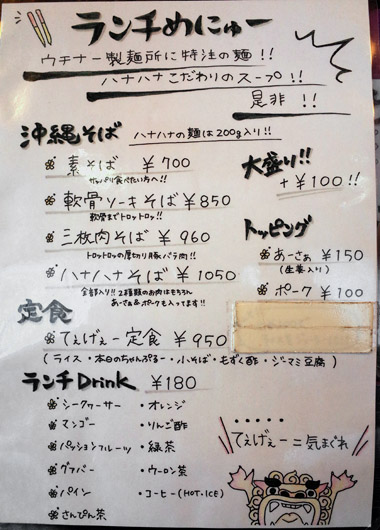 ランチめにゅー
ウチナー製麺所に特注の麺!!
ハナハナこだわりのスープ!!
是非!!
沖縄そば ハナハナの麺は200g入り!!
素そば ¥700
サッパリ食べたい方へ!!
軟骨ソーキそば ¥850
軟骨までトロットロッ!!
三枚肉そば ¥960
トロットロの厚切り豚バラ肉!!
ハナハナそば ¥1050
全部入り!!2種類のお肉はもちろん
あーさぁ&ポークも入ってます!!
大盛り!!
+¥100!!
トッピング
あーさぁ ¥150
(生姜入り)
ポーク ¥100
定食
てぇげぇー定食 ¥950
(ライス・本日のちゃんぷるー・小そば・もずく酢・ジーマミ豆腐)
ランチDrink ¥180
シークヮーサー ・オレンジ
マンゴー ・りんご酢
パッションフルーツ ・緑茶
グァバー ・ウーロン茶
パイン ・コーヒー(HOT・ICE)
さんぴん茶
・・・・・
てぇげぇー=気まぐれ